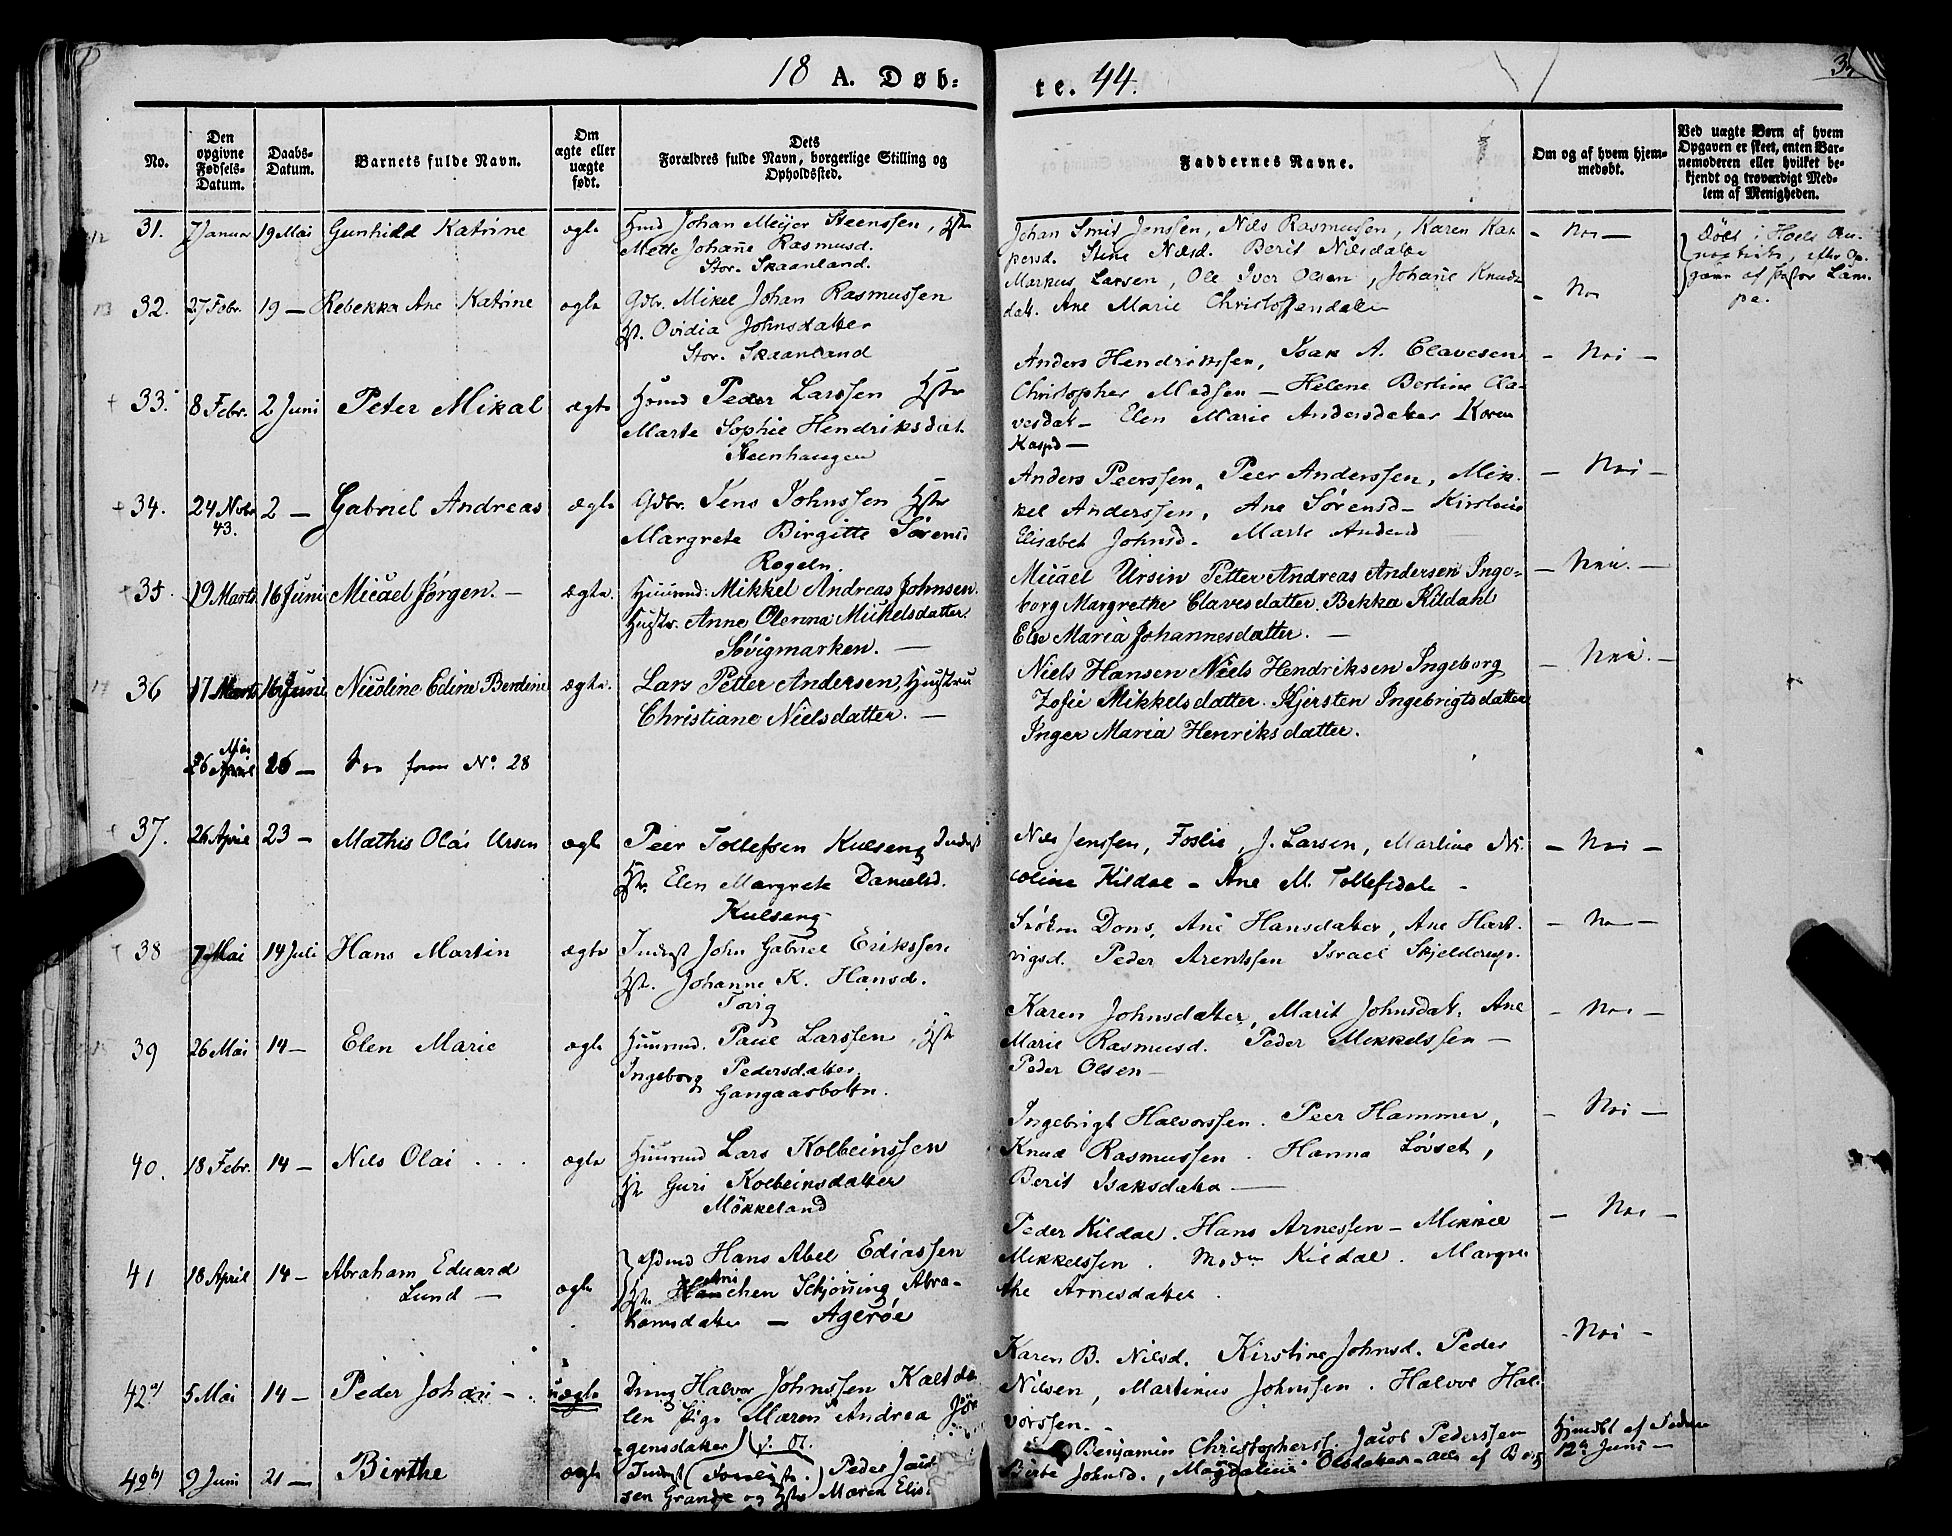 18 A. Døb-
te. 44.
No.
Den
opgivne
Fødsels-
Datum.
Daabs-
Datum.
Barnets fulde Navn.
Om
ægte eller
uægte
født.
Dets
Forældres fulde Navn, borgerlige Stilling og
Opholdssted.
Faddernes Navne.
Om og af hvem hjem-
medøbt.
Ved uægte Børn af hvem
Opgaven er skeet, enten Bar-
nemoderen eller hvilket be-
kjendt og troværdigt Med-
lem af Menigheden.
31. 7 Januar 19 Mai Gunhild Katrine ægte Huusmd Johan Meijer Steenssen, Hstr
Mette Johañe Rasmusd.
Stor. Skaanland.
Johan Smit Jenssen, Nils Rasmussen, Karen Kas-
persd. Stine Nilsd. Berit Nilsdatter
– Nei –
Døbt i Hoels
af Pastor Lam-
pe.
32. 27 Febr. 19 – Rebekka Ane Katrine ægte Gdbr. Mikel Johan Rasmussen
Hst. Ovidia Johnsdatter
Stor. Skaanland
Markus Larsen, Ole Iver Olsen, Johañe Knuds-
dat. Ane Marie Christoffersdatter
– Nei
33. 8 Febr. 2 Juni Peter Mikal ægte Huusmd Peder Larssen Hstr
Marte Sophie Hendriksdat.
Steenhaugen
Anders Hendrikssen, Isak A. Clavesen
Christopher Madsen – Helene Berline Cla-
vesdat – Elen Marie Andersdatter Karen
Kaspd –
– Nei –
34. 24 Novbr
43.
2 – Gabriel Andreas ægte Gdbr. Jens Johnssen Hstr
Margrete Birgitte Sørensd
Rogeln.
Anders Peerssen, Peer Anderssen, Mik-
kel Anderssen, Ane Sørensd – Kirstine
Elisabet Johnsd. Marte Andersd
– Nei –
35. 19 Marts 16 Juni Micael Jørgen. – ægte. Huusmd. Mikkel Andreas Johnsen.
Hustr. Anne Olenna Mickelsdatter.
Søvigmarken. –
Micael Ursin Petter Andreas Andersen Inge-
borg Margrethe Clavesdatter. Bekka Kildahl
Else Maria Johannesdatter. –
– Nei. –
36 17 Marts 16 Juni Nicoline Edine Berdine ægte. Lars Petter Andersen, Hustru
Christiane Nielsdatter. –
Niels Hansen Niels Hendriksen Ingeborg
Zofie Mikkelsdatter. Kjersten Ingebrigtsdatter
Inger Maria Henriksdatter.
– Nei. –
Mai
26 April 26 – See foran No. 28
37. 26 April 23 – Mathis Olai Ursin ægte Peer Tollefsen Kulseng Inderst
Hst. Elen Margrete Danielsd.
Kulseng
Nils Jenssen, Foslie, J. Larsen, Martine Ni-
coline Kildal – Ane M. Tollefsdatter –
– Nei –
38 7 Mai 14 Juli Hans Martin ægte Inderst John Gabriel Erikssen
Hst. Johanne K. Hansd.
Tovig
Frøken Dons, Ane Hansdatter, Ane Hart-
vigsd. Peder Arentssen Israel Skjelderup.
– Nei –
39 26 Mai 14 – Elen Marie ægte Huusmd. Paul Larssen, Hstr
Ingeborg Pedersdatter
Gangaasbotten.
Karen Johnsdatter, Marit Johnsdat. Ane
Marie Rasmusd. Peder Mikkelssen –
Peder Olsen –
– Nei –
40. 18 Febr. 14 – Nils Olai ægte Huusmd Lars Kolbeinssen
Hst Guri Kolbeinsdatter
Møkkeland
Ingebrigt Halvorssen. Peer Hammer,
Knud Rasmussen. Hanna Løvset,
Berit Isaksdatter –
– Nei –
41 18 April 14 – Abraham Eduard
Lund –
ægte Hans Abel Ediassen
Hst. chen Schjøning Abra-
hamsdatter – Agerøe
Peder Kildal. Hans Arnessen – Mikkel
Mikkelssen. Kildal. Margre-
the Arnesdatter.
– Nei –
42a) 5 Mai 14 – Peder Johan – uægte Dreng Halvor Johnssen Kaltda-
len Pige Maren Andrea Jør-
gensdatter
Karen B. Nilsd. Kirstine Johnsd. Peder
Nilsen, Martinus Johnssen. Halvor Hal-
vorssen. –
– Nei –
42b) 9 Juni 21 – Birthe ægte Inderst Peder
sen Grande og Hstr Maren Elis
Benjamin Christophers. Jacob Pederssen
Birte Johnsd., Magdalene Olsdatter – alle af
Hjmdbt af Faderen
12te Juni –